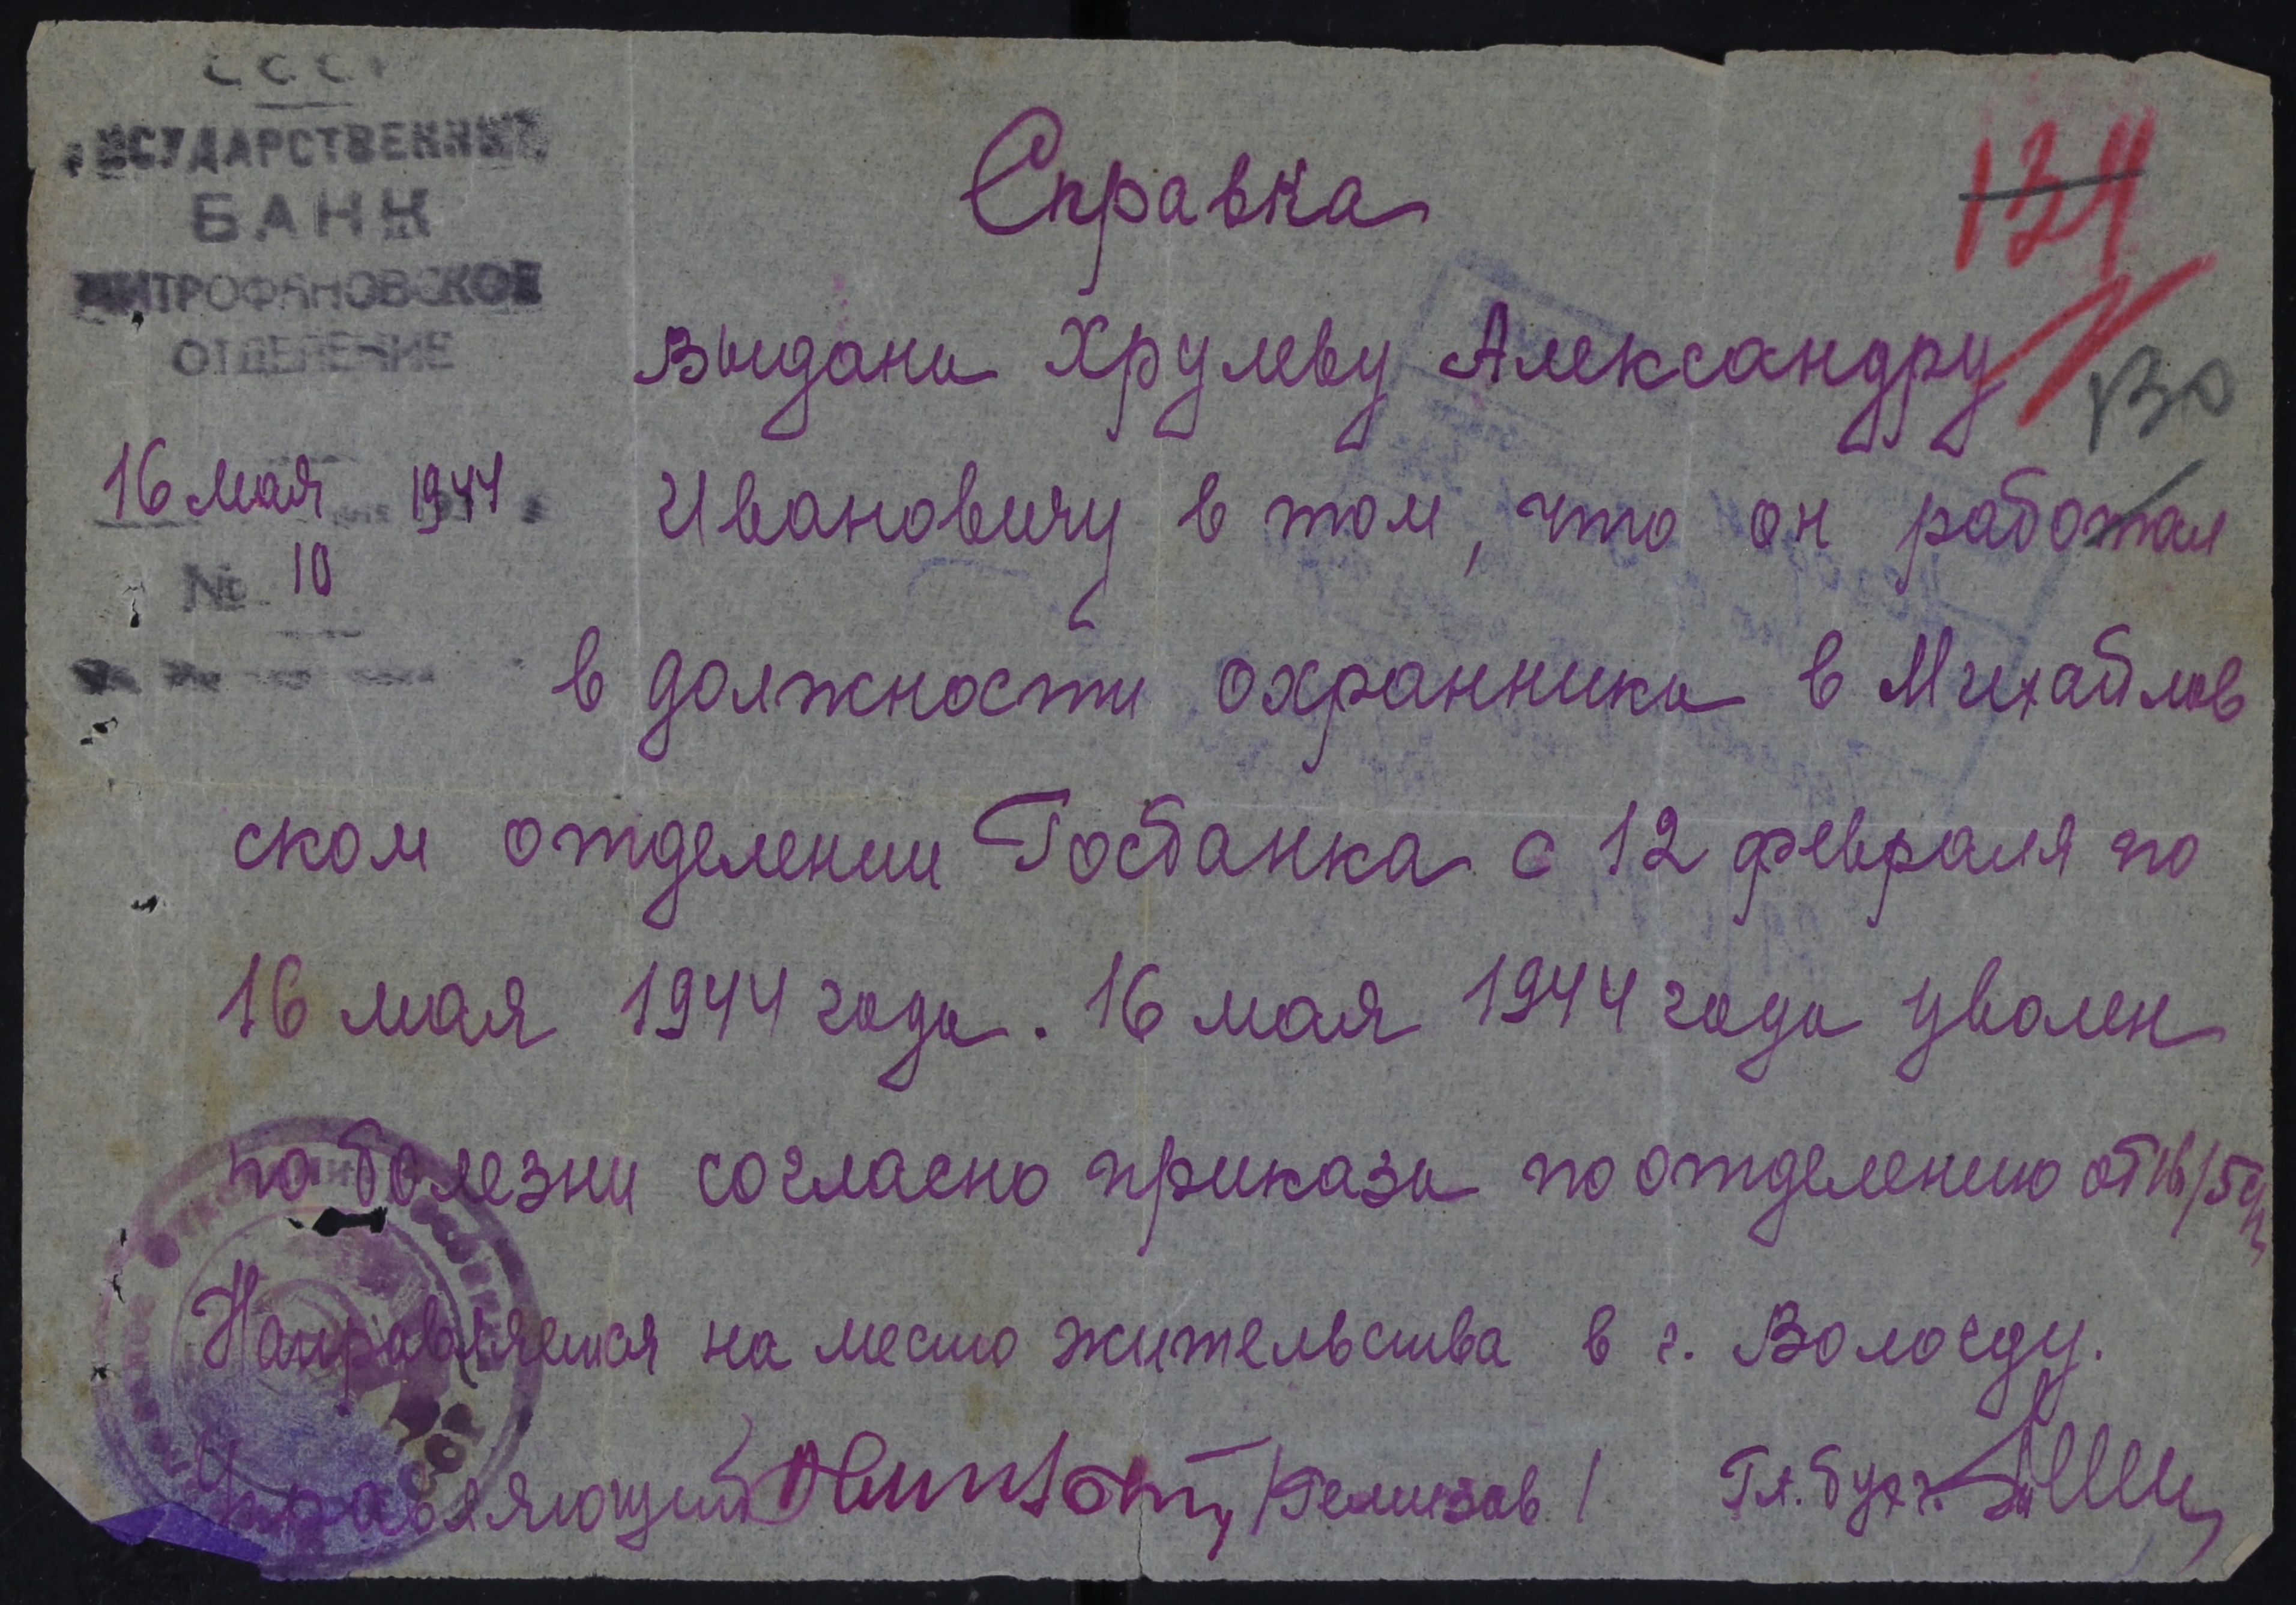 СССР
ГОСУДАРСТВЕННЫЙ
БАНК
МИТРОФАНОВСКОЕ
ОТДЕЛЕНИЕ
16 мая 1944
№ 10
134
130
Справка
Выдана Хрулеву Александру
Ивановичу в том, что он работал
в должности охранника в Михайлов
ском отделении Госбанка с 12 февраля по
16 мая 1944 года. 16 мая 1944 года уволен
по болезни согласно приказа по отделению от 16/5
Направляется на место жительства в г. Вологду.
Управляющий /Гелизов/ Гл. бухг.